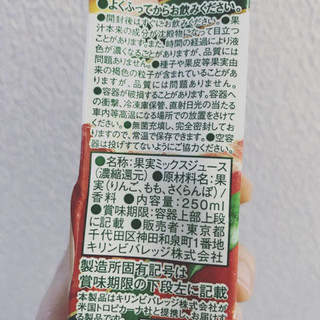 ●よくふってからお飲みください。
●開封後はすぐにお飲みください。●果
汁本来の成分が沈殿物になって目立つ
ことがあります。また、時間の経過により液
色が濃くなることがありますが、品質には
問題ありません。●種子や果皮等果実由
来の褐色の粒子が含まれていることがあ
りますが、品質には問題ありません。
●容器が破損することがあります。容器へ
の衝撃、冷凍庫保管、直射日光の当たる
車内等高温になる場所での放置をさけて
ください。●無菌充填し、完全密封してお
りますので、常温で保存できます。●空容
器は投げすてないようにご協力ください。
●名称：果実ミックスジュース
（濃縮還元）●原材料名：果
実（りんご、もも、さくらんぼ）／
香料 ●内容量：250ml
●賞味期限：容器上部上段
に記載 ●販売者：東京都
千代田区神田和泉町1番地
キリンビバレッジ株式会社
製造所固有記号は
賞味期限の下段左に記載
本製品はキリンビバレッジ株式会社が
米国トロピカーナ社と提携し、お届けす